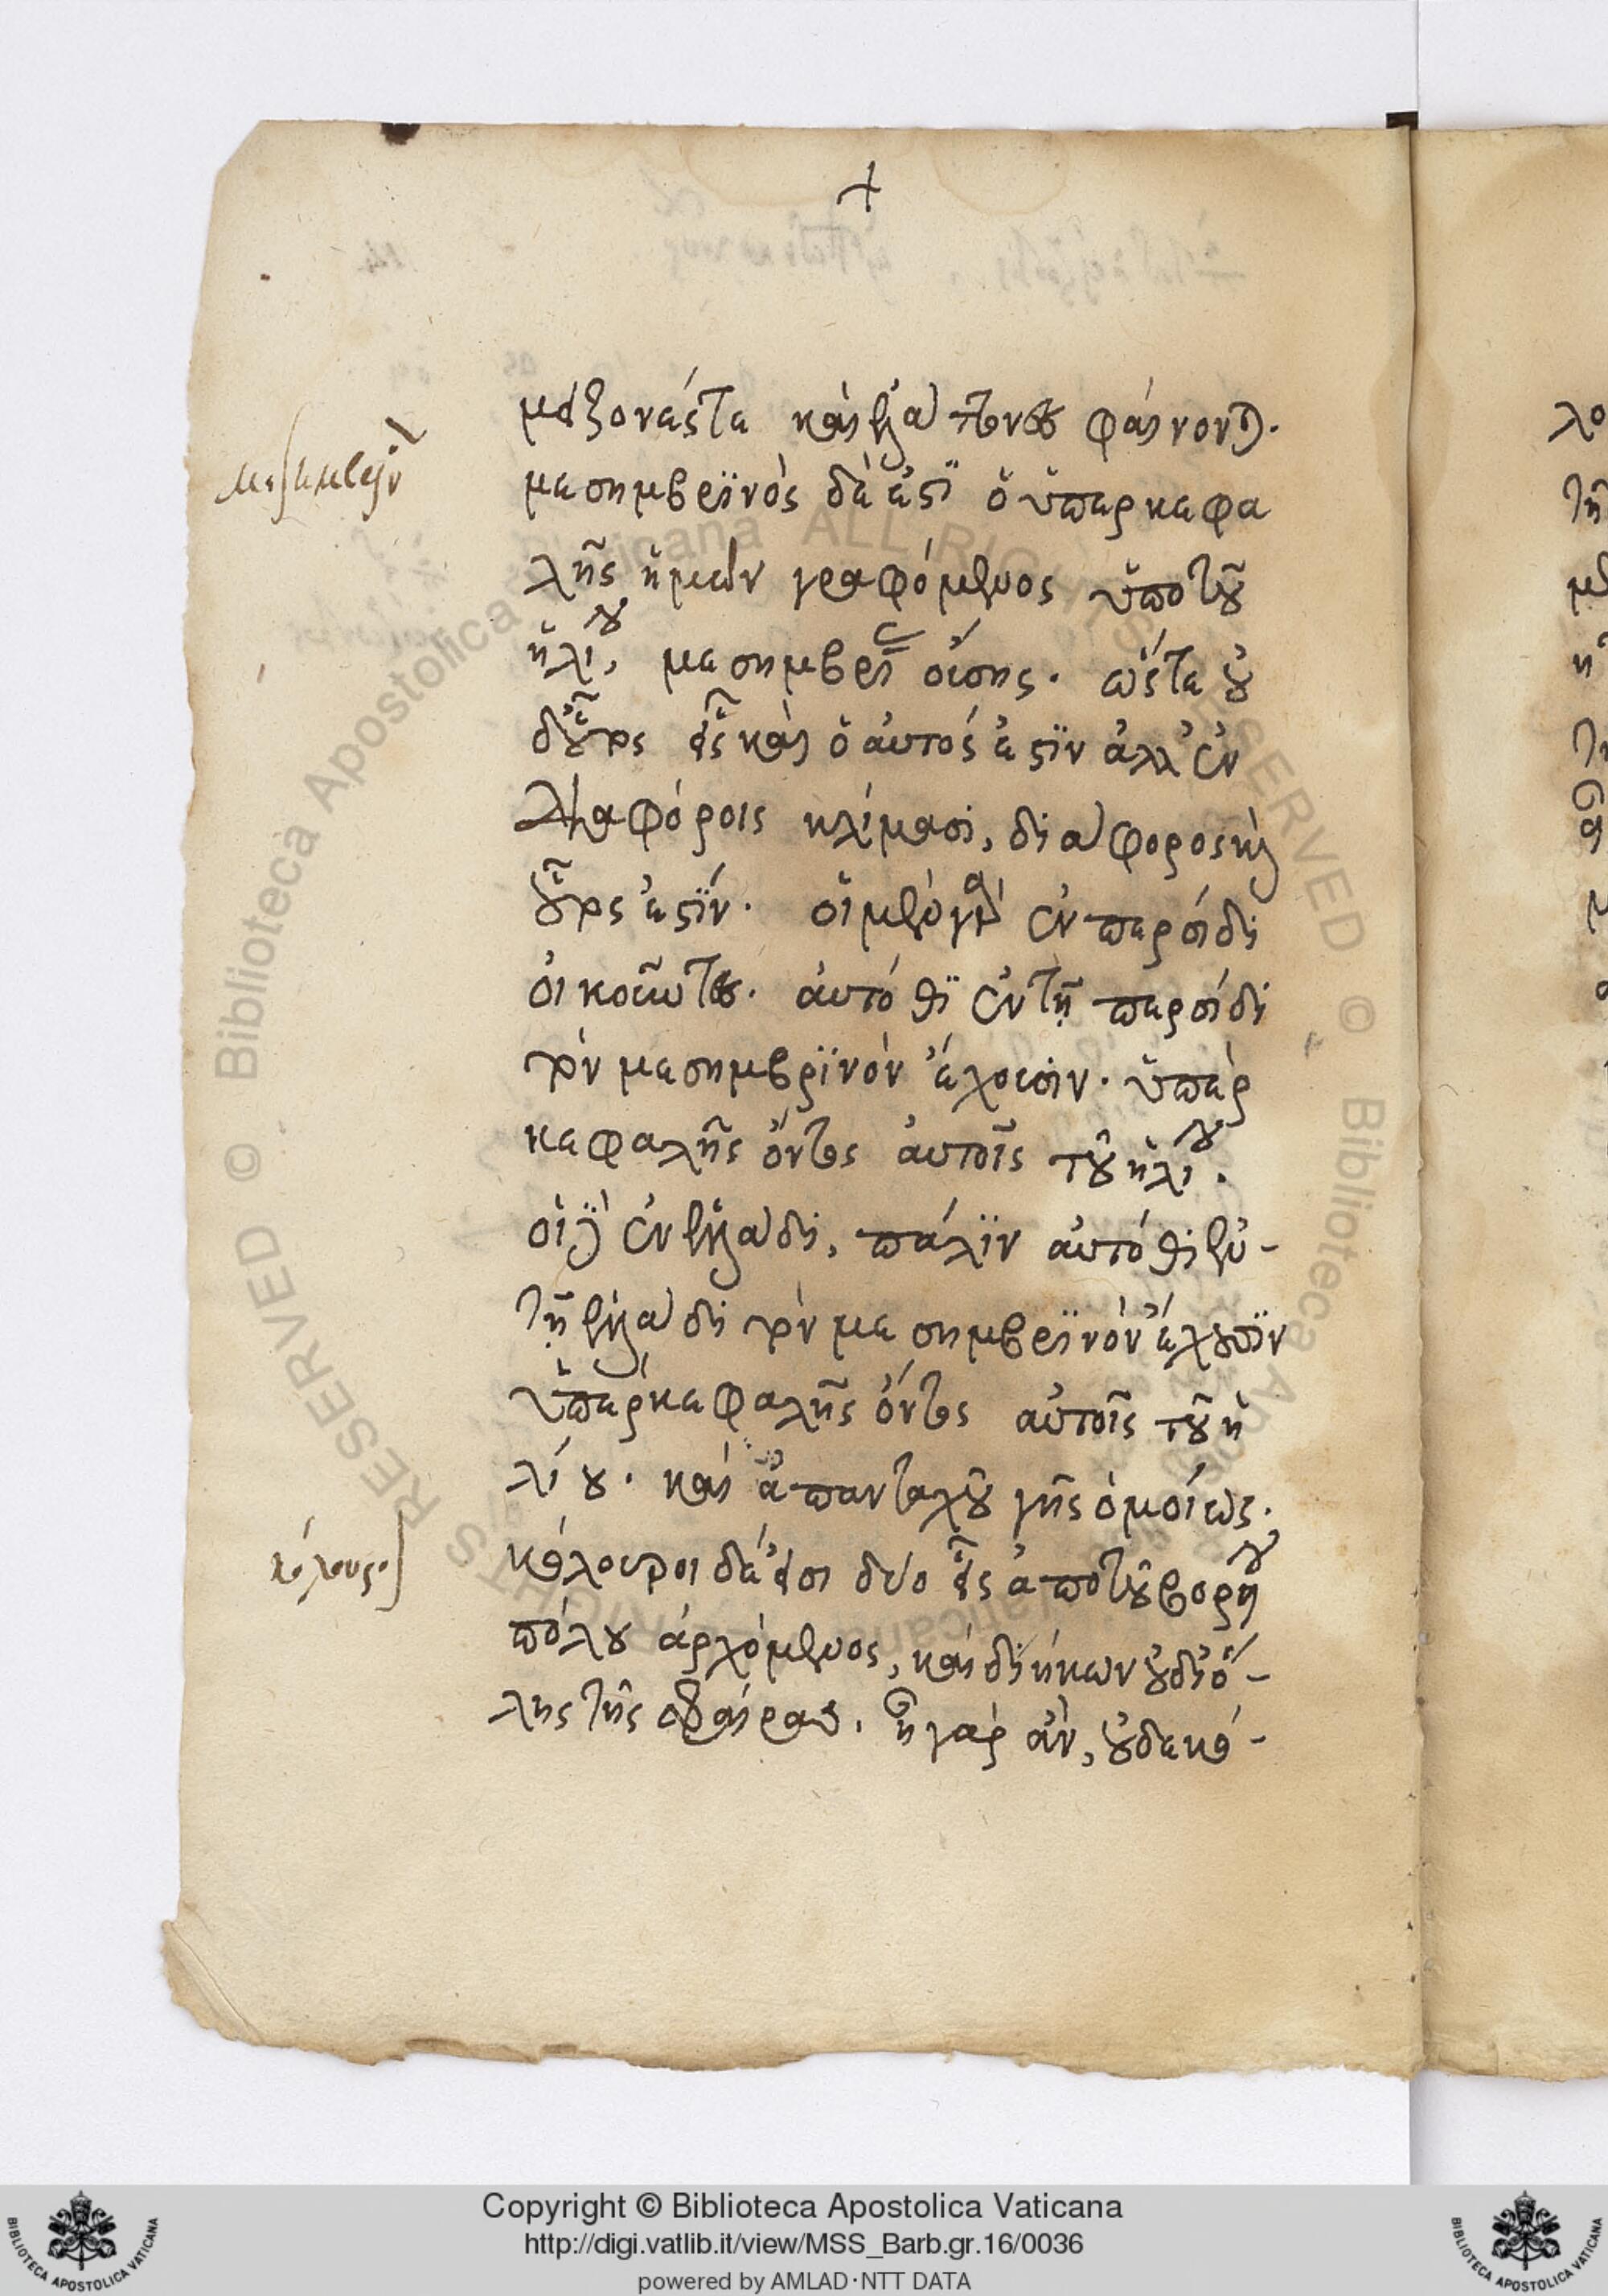 +
μείζονές τε καὶ ἐλάττονες φαίνονται.
μεσημβρϊνὸς δέ ἐστϊ ὁ ὑπερ κεφα
λῆς ἡμῶν γραφόμενος ὑπο τοῦ
ἡλίου, μεσημβρίας οὔσης. ὥστε οὐ
δ' οὗτος εἷς καὶ ὁ αὐτός ἐστϊν ἀλλ' ἐν
διαφόροις κλίμασι, διάφορος καὶ
οὗτος ἐστίν. οἱ μὲν γὰρ ἐν περσίδι
οἰκοῦντες. αὐτόθϊ ἐν τῇ περσίδι
τὸν μεσημβρϊνὸν ἔχουσιν. ὑπὲρ
κεφαλῆς ὄντος αὐτοῖς τοῦ ἡλίου.
οἱ δὲ ἐν ἑλλάδι, πάλϊν αὐτόθι ἐν
τῇ ἑλλάδι τὸν μεσημβρϊνὸν ἔχουσϊν
ὑπὲρ κεφαλῆς ὄντος αὐτοῖς τοῦ ἡ
λίου. καὶ ἁπανταχοῦ γῆς ὁμοίως.
κόλουροι δέ εἰσι δύο εἷς ἀπο τοῦ βορείου
πόλου ἀρχόμενος, καὶ διήκων οὐ δι' ὅ-
λης τῆς σφαίρας. ἦ γὰρ ἂν, οὐδε κό-
μεσημβριν
κόλουρο
Copyright © Biblioteca Apostolica Vaticana
http://digi.vatlib.it/view/MSS_Barb.gr.16/0036
powered by AMLAD·NTT DATA